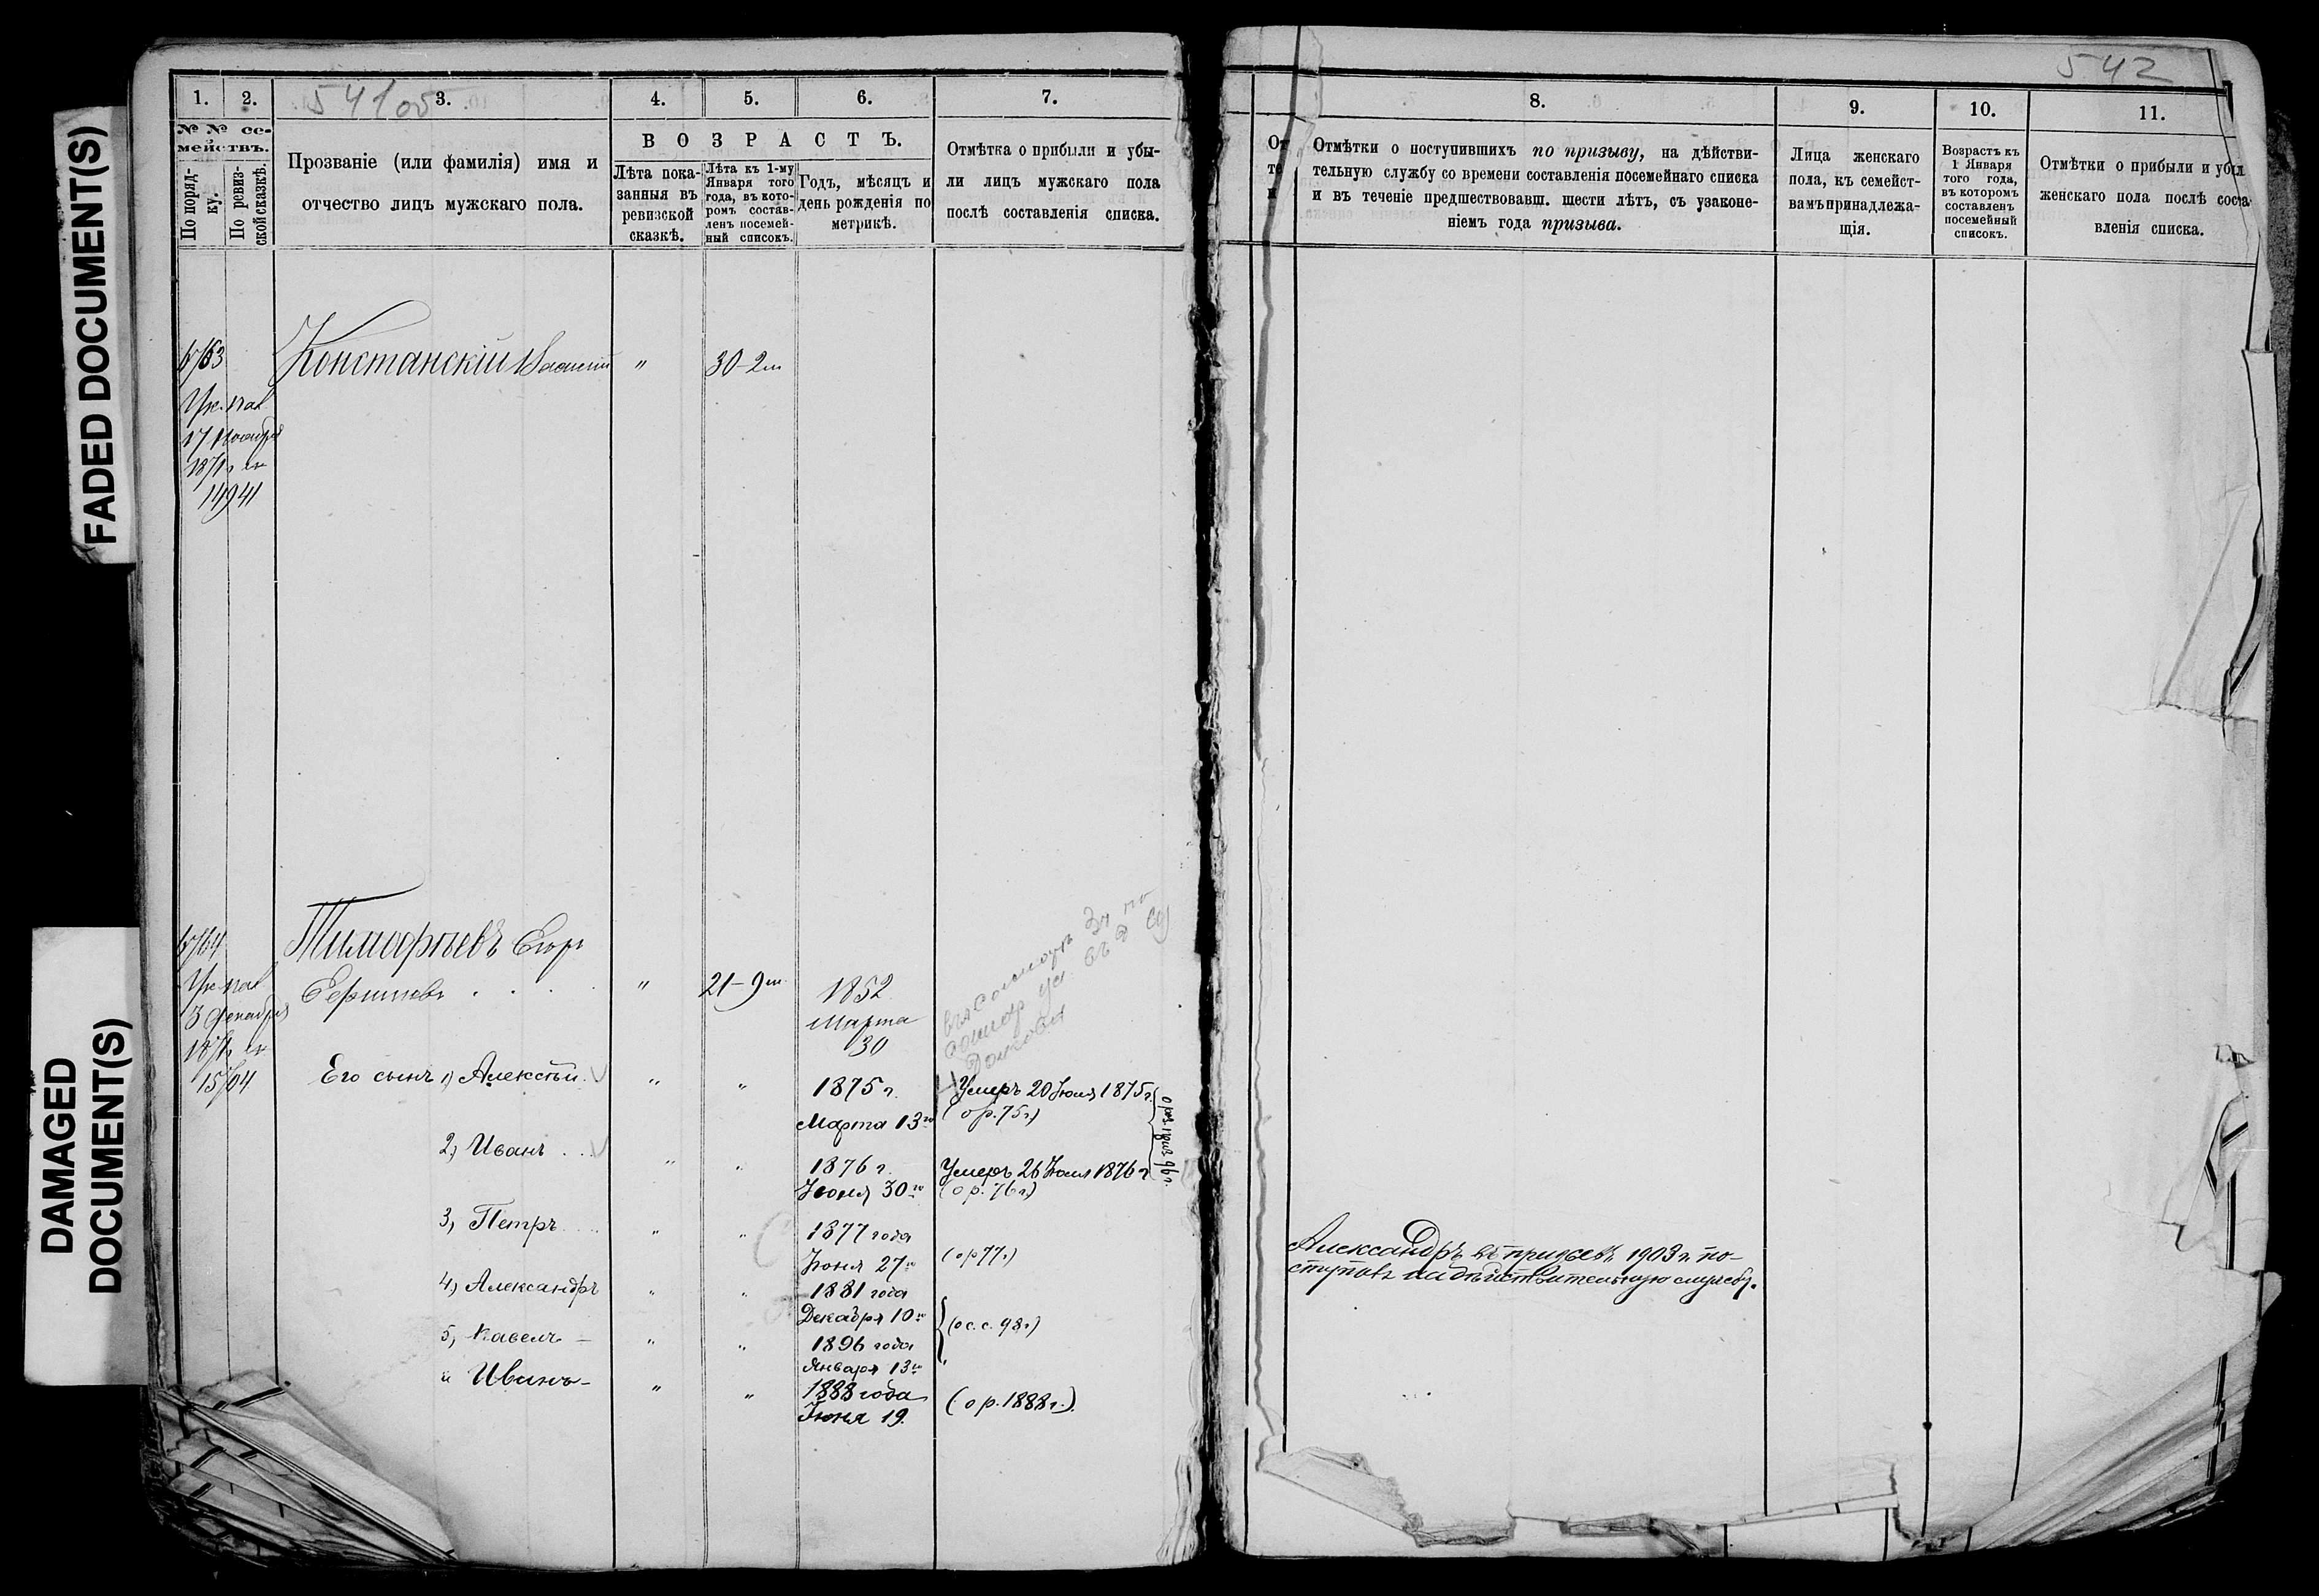 FADED DOCUMENT(S)
DAMAGED
DOCUMENT(S)
1. 2. 3. 4. 5. 6. 7.
№ № се-
мействъ.
По поряд-
ку.
По ревиз-
ской сказкѣ.
Прозваніе (или фамилія) имя и
отчество лицъ мужскаго пола.
ВОЗРАСТЪ.
Лѣта пока-
занныя въ
ревизской
сказкѣ.
Лѣта къ 1-му
Января того
года, въ кото-
ромъ состав-
ленъ посемей-
ный списокъ.
Годъ, мѣсяцъ и
день рожденія по
метрикѣ.
Отмѣтка о прибыли и убы-
ли лицъ мужскаго пола
послѣ составленія списка.
Констанскій " 30-2м
17 Ноября
14941
Тимофѣевъ Егоръ
" 21-9м 1852
Марта
30
3 Декабря
Его сынъ 1) Алексѣй " " 1875 г. Умеръ 20 Іюля 1875 г.
Марта 13го (ор. 75 г.)
2) Иванъ " " 1876 г. Умеръ 26 Іюля 1876 г.
Іюня 30го (ор. 76 г.)
3) Петръ " " 1877 года
Іюня 27го (ор 77 г.)
4) Александръ " " 1881 года
Декабря 10го (ос. с. 98 г.)
5) Павелъ – " " 1896 года
Января 13го
и Иванъ – " " 1888 года (ор. 1888 г.)
Іюня 19.
542
8. 9. 10. 11.
Отмѣтки о поступившихъ по призыву, на дѣйстви-
тельную службу со времени составленія посемейнаго списка
и въ теченіе предшествовавш. шести лѣтъ, съ узаконе-
ніемъ года призыва.
Лица женскаго
пола, къ семейст-
вамъ принадлежа-
щія.
Возрастъ къ
1 Января
того года,
въ которомъ
составленъ
посемейный
списокъ.
Отмѣтки о прибыли и убыл
женскаго пола послѣ соста-
вленія списка.
Александръ въ призывъ 1903 г. по-
ступилъ на дѣйствительную службу.